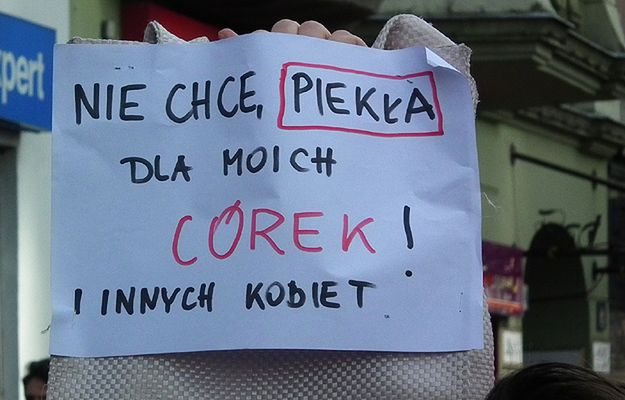 pert
NIE CHCĘ PIEKŁA
DLA MOICH
CÓREK !
I INNYCH KOBIET